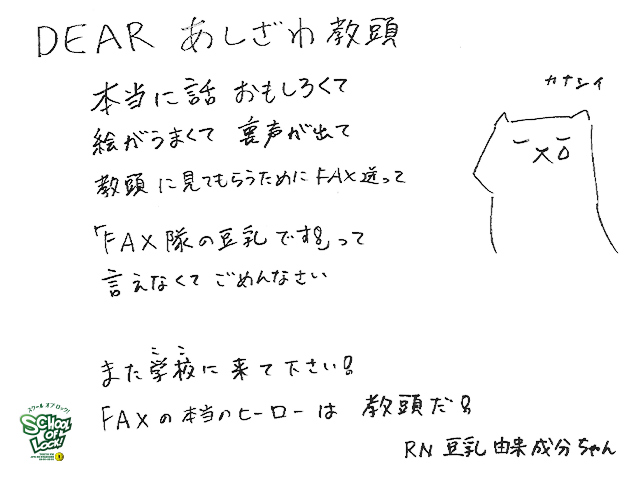 DEAR あしざわ教頭
カナシイ
本当に話 おもしろくて
絵がうまくて 裏声が出て
教頭に見てもらうために FAX送って
「FAX隊の豆乳です!」って
言えなくて ごめんなさい
ココ
また学校に来て下さい!
FAXの本当のヒーローは 教頭だ!
RN 豆乳由来成分ちゃん
スクールオブロック!
SCHOOL
OF
LOCK!